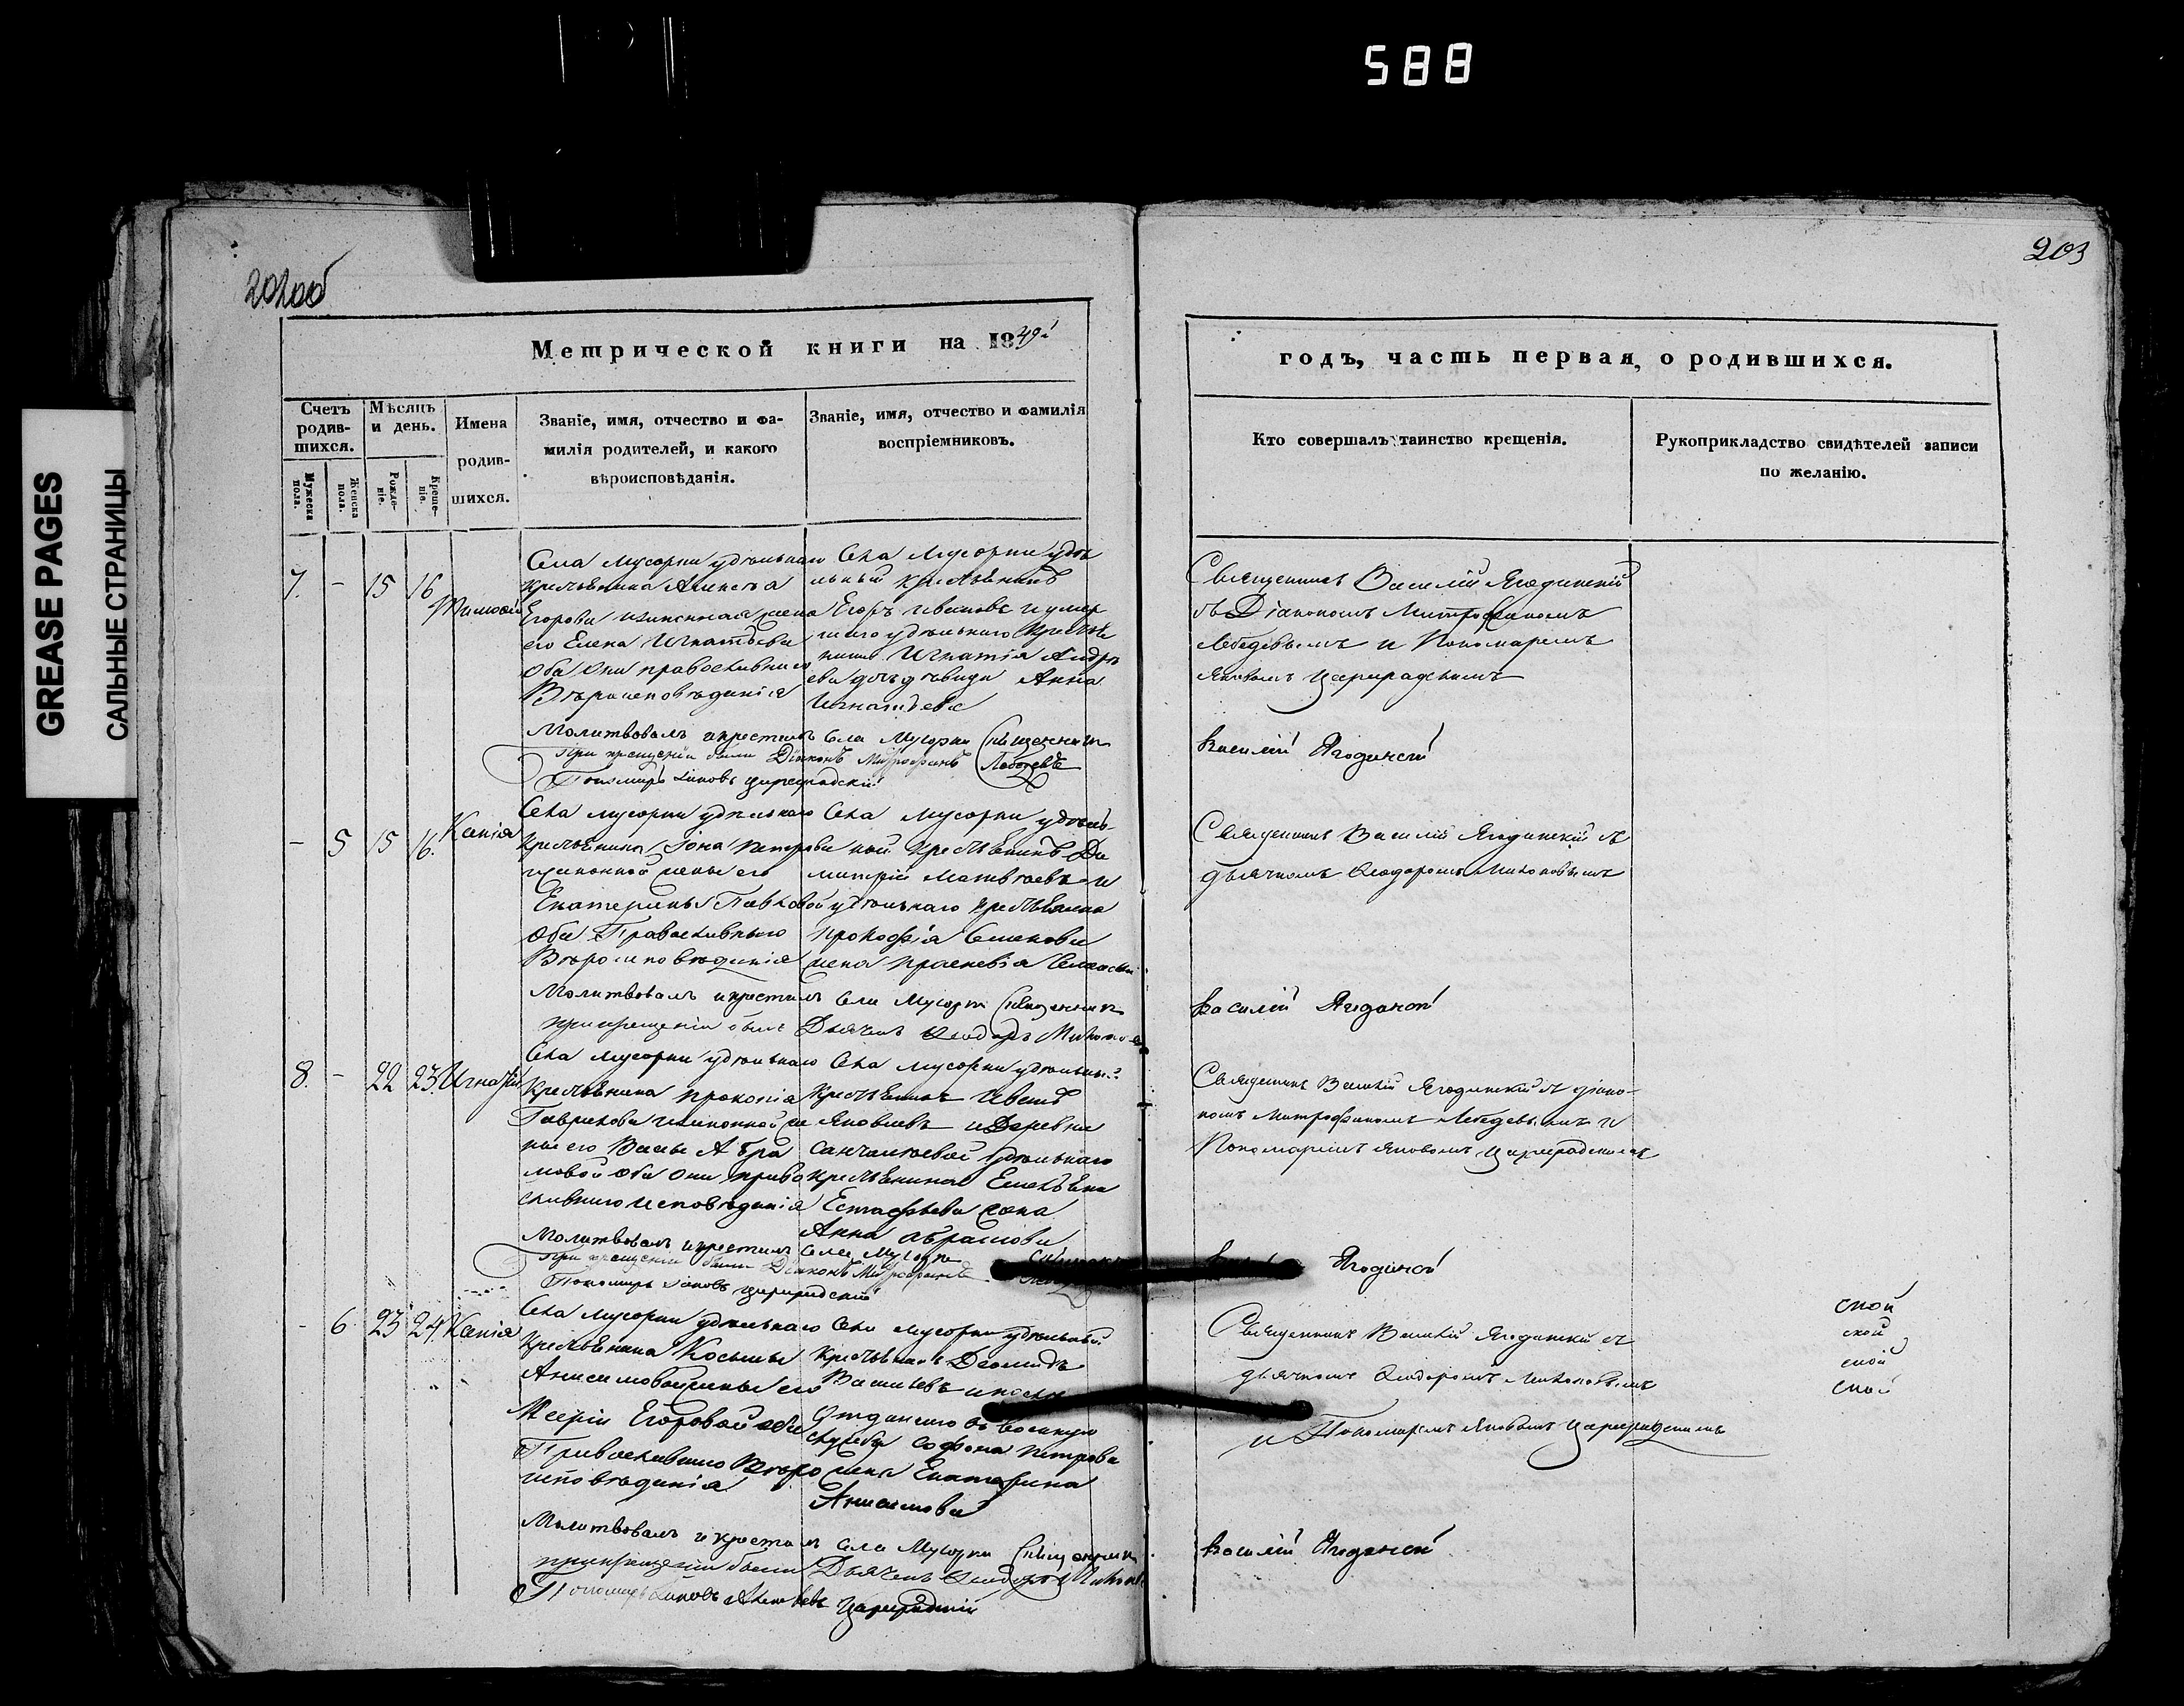 588
GREASE PAGES
САЛЬНЫЕ СТРАНИЦЫ
202об
203
Метрической книги на 1849й
годъ, часть первая, о родившихся.
Счетъ родив-
шихся.
Мѣсяцъ
и день.
Имена
родив-
шихся.
Званіе, имя, отчество и фа-
милія родителей, и какого
вѣроисповѣданія.
Званіе, имя, отчество и фамилія
воспріемниковъ.
Кто совершалъ таинство крещенія.
Рукоприкладство свидѣтелей записи
по желанію.
Мужеска
пола.
Женска
пола.
Рожде-
ніе.
Креще-
ніе.
7. - 15 16 Тимофей
Села Мусорки удѣльнаго
крестьянина Алексѣя
Егорова и законная жена
его Елена Игнатьева
оба они православнаго
Вѣроисповѣданія
Села Мусорки удѣ
льный крестьянинъ
Егоръ Ивановъ и умер
шаго удѣльнаго крестья
нина Игнатія Андре
ева дочь дѣвица Анна
Игнатьева
Священникъ Василій Ягодинскій
съ Діакономъ Митрофаномъ
Лебедевымъ и Пономаремъ
Яковомъ Цареградскимъ
Молитвовалъ и крестилъ села Мусорки Священникъ
Василій Ягодинскій
При крещеніи были Діаконъ Митрофанъ Лебедевъ
Пономарь Іаковъ Цареградскій
- 5 15 16. Ксенія
Села Мусорки удѣльнаго
крестьянина Іона Петрова
и законной жены его
Екатерины Павловой
оба Православнаго
Вѣроисповѣданія
Села Мусорки удѣль-
ной крестьянинъ Ди
митрій Матвѣевъ и
удѣльнаго крестьянина
Прокофія Семенова
жена Праскевія
Священникъ Василій Ягодинскій съ
дьячкомъ Ѳеодоромъ
Молитвовалъ и крестилъ села Мусорки Священникъ
Василій Ягодинскій
при крещеніи былъ Дьячекъ Ѳеодоръ
8. - 22 23. Игнатій
Села Мусорки удѣльнаго
крестьянина Прокопія
Гаврилова и законной же
ны его Вассы Абра
мовой оба они право
славнаго исповѣданія
Села Мусорки удѣльный
крестьянинъ Иванъ
Яковлевъ и Деревни
удѣльнаго
крестьянина Емельяна
Естафьева жена
Анна Абрамова
Священникъ Василій Ягодинскій съ діако-
номъ Митрофаномъ Лебедевымъ и
Пономаремъ Яковомъ Цареградскимъ
Молитвовалъ и крестилъ села Мусорки
Ягодинскій
При крещеніи были Діаконъ Митрофанъ
Пономарь Іаковъ Цареградскій
- 6 23 24. Ксенія
Села Мусорки удѣльнаго
крестьянина Косьмы
Анисимова жены его
Маріи Егоровой оба
Православнаго Вѣро
исповѣданія
Села Мусорки удѣльный
крестьянинъ Диомидъ
Васильевъ и
отданнаго въ военную
службу Софона Петрова
жена Екатерина
Анисимова
Священникъ Василій Ягодинскій съ
дьячкомъ Ѳеодоромъ
и Пономаремъ Яковомъ Цареградскимъ
ской
ской
ской
ской
Молитвовалъ и крестилъ села Мусорки Священникъ
Василій Ягодинскій
при крещеніи были Дьячекъ Ѳеодоръ
Пономарь Іаковъ Цареградскій